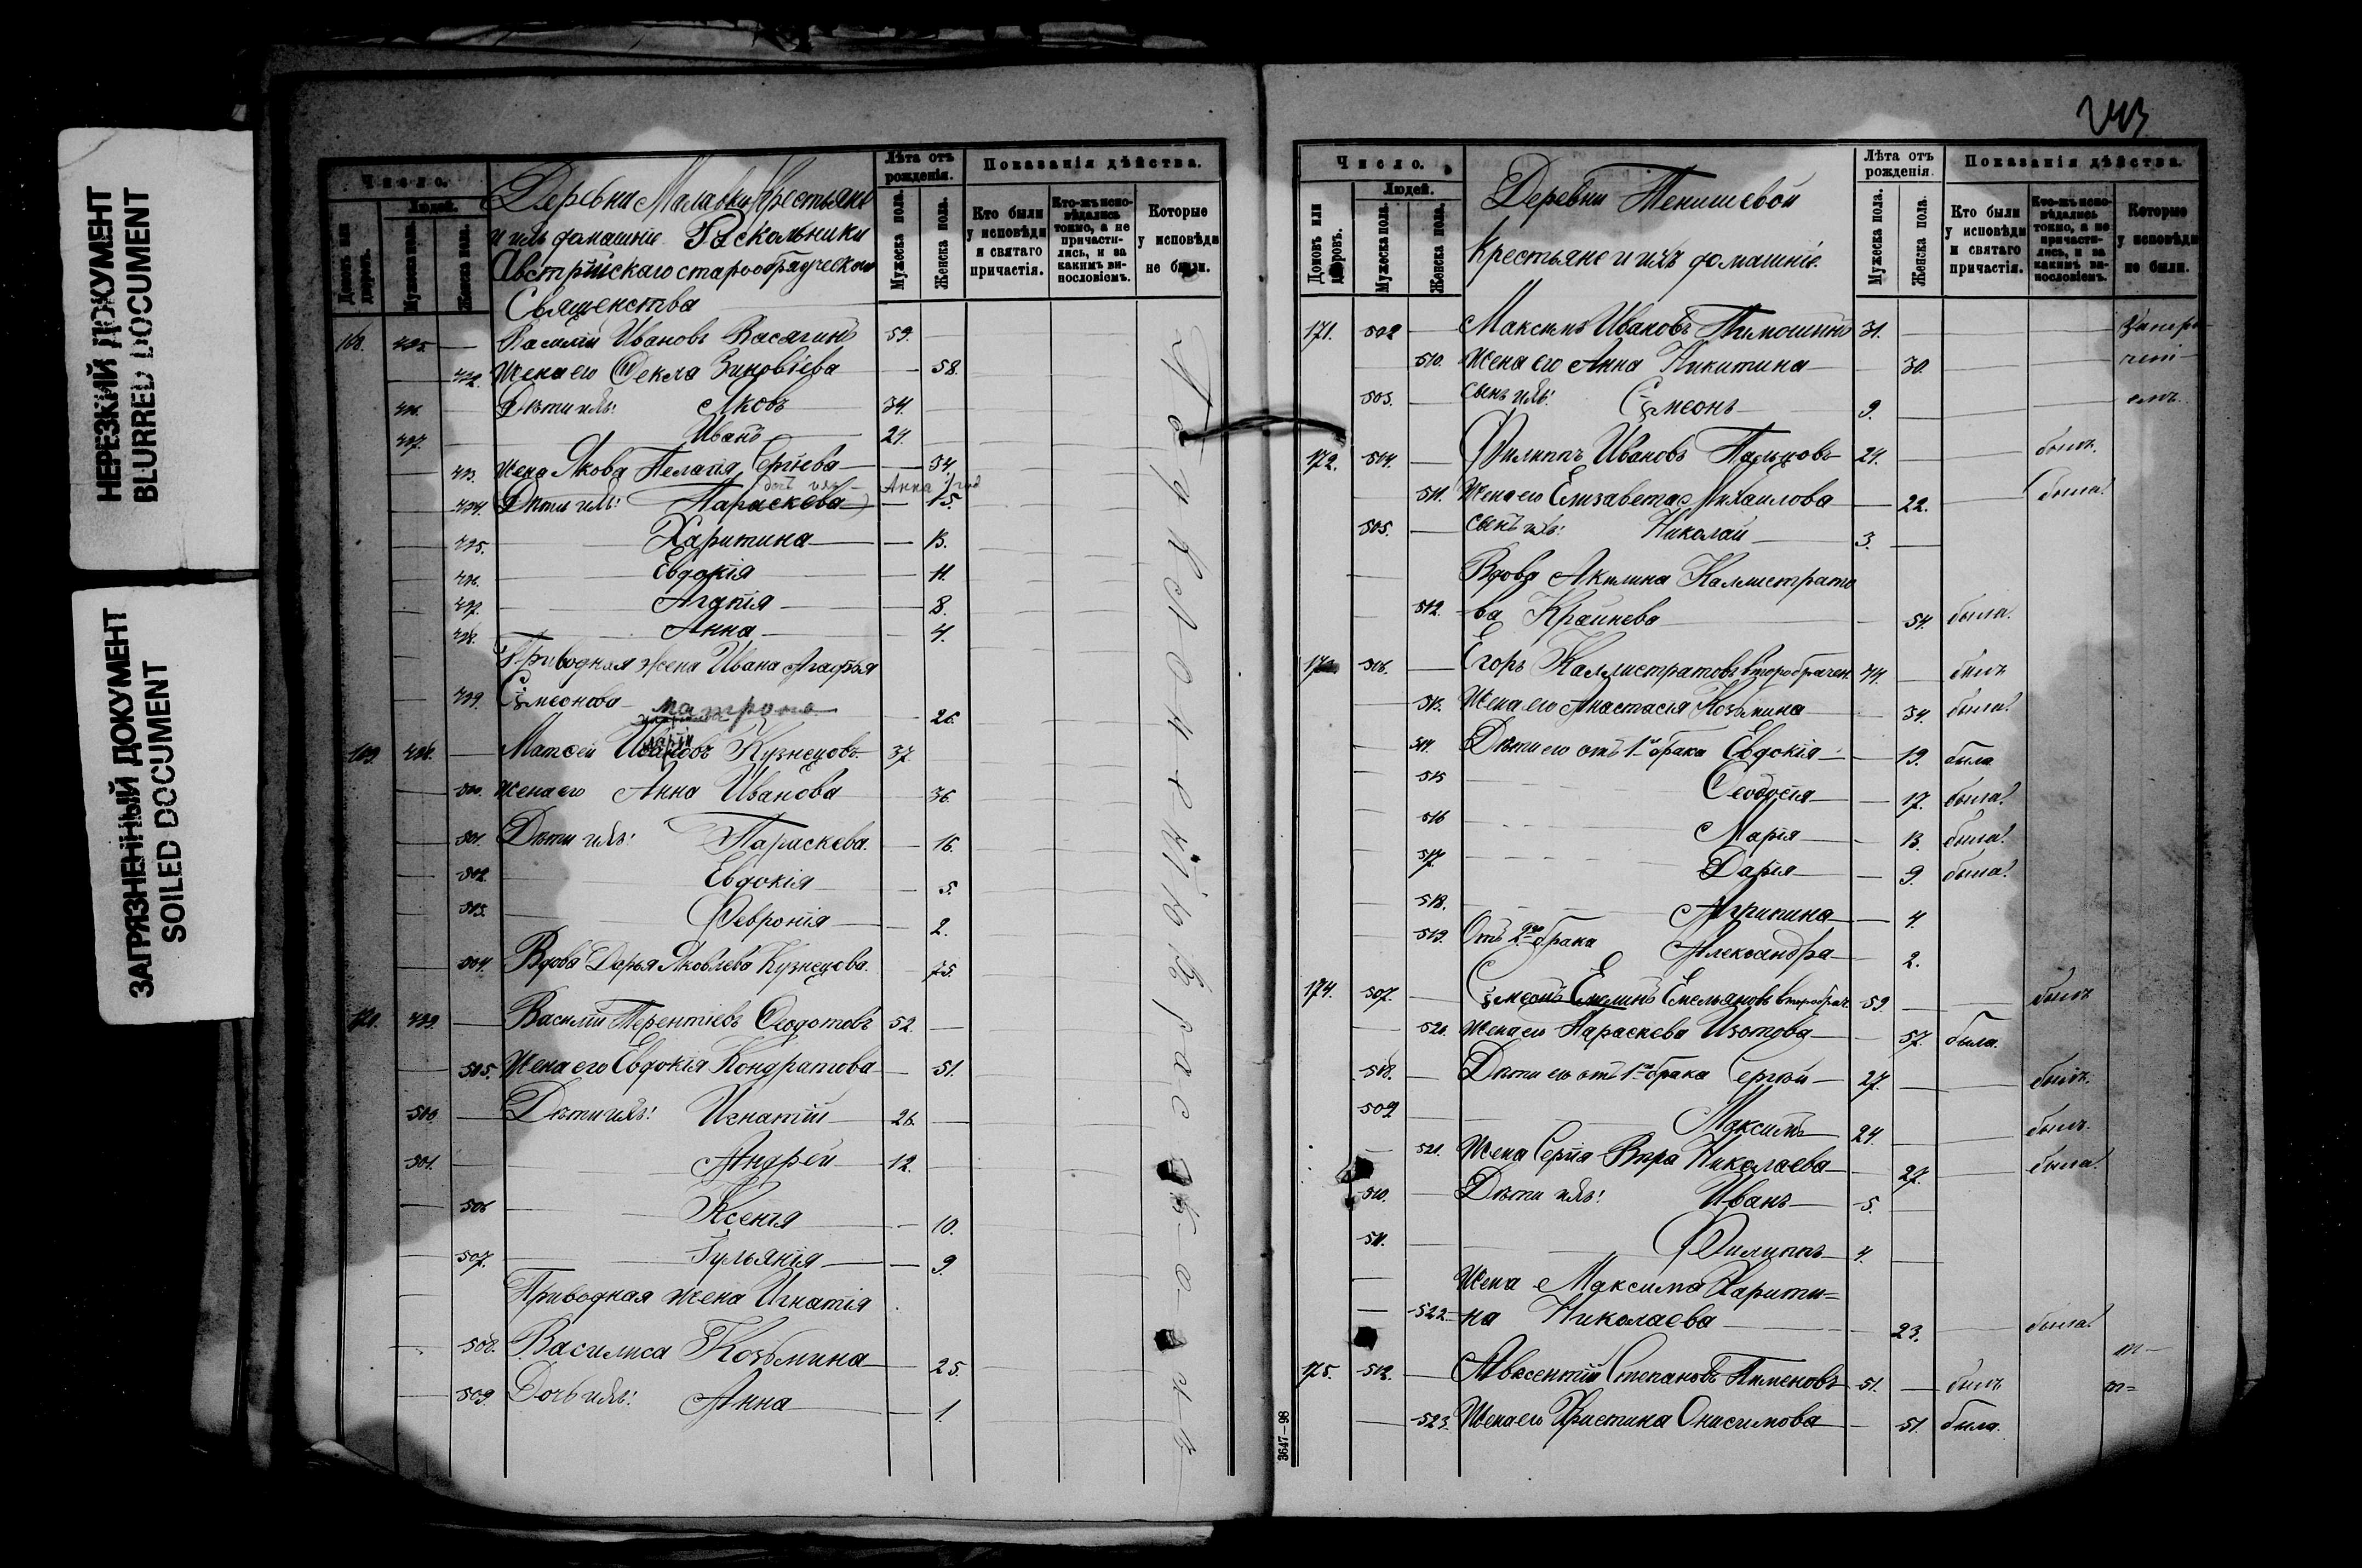 НЕРЕЗКИЙ ДОКУМЕНТ
BLURRED DOCUMENT
ЗАГРЯЗНЕННЫЙ ДОКУМЕНТ
SOILED DOCUMENT
Число.
Людей.
Домовъ или дворовъ.
Мужеска пола.
Женска пола.
Деревни Малавки Крестьяне
и ихъ домашніе Раскольники
Австрійскаго старообрядческаго
Священства
Лѣта отъ рожденія.
Мужеска пола.
Женска пола.
Показанія дѣйства.
Кто были у исповѣди и святаго причастія.
Кто-жъ исповѣдались токмо, а не причастились, и за какимъ винословіемъ.
Которые у исповѣди не были.
168. 495. Василій Ивановъ 59.
492. Жена его Ѳекла Зиновіева 58.
496. Дѣти ихъ: Яковъ 34.
497. Иванъ 24.
493. Жена Якова Пелагія Сергіева 34.
дочь ихъ Анна 1 год
494. Дѣти ихъ: Параскева 15.
495. Харитина 13.
496. Евдокія 11.
497. Агапія 8.
498. Анна 4.
Приводная жена Ивана Агафья
499. Сѵмеонова 26.
матрона
169. 498. Матѳей Ивановъ Кузнецовъ 37.
500. Жена его Анна Иванова 36.
501. Дѣти ихъ: Параскева. 16.
502. Евдокія 5.
503. Февронія 2.
504. Вдова Дарья Яковлева Кузнецова. 75.
170. 499. Василій Терентіевъ Ѳеодотовъ 52.
505. Жена его Евдокія Кондратова 51.
500. Дѣти ихъ: Игнатій 26.
501. Андрей 12.
506 Ксенія 10.
507. Іульянія 9.
Приводная жена Игнатія
508. Василиса Козьмина 25.
509. Дочь ихъ: Анна 1.
Число.
Людей.
Домовъ или дворовъ.
Мужеска пола.
Женска пола.
Деревни Тенишевой
Крестьяне и ихъ домашніе.
Лѣта отъ рожденія.
Мужеска пола.
Женска пола.
Показанія дѣйства.
Кто были у исповѣди и святаго причастія.
Кто-жъ исповѣдались токмо, а не причастились, и за какимъ винословіемъ.
Которые у исповѣди не были.
171. 502 Максимъ Ивановъ Тимошинъ 31.
510. Жена его Анна Никитина 30.
503. сынъ ихъ: Сѵмеонъ 9.
172. 504. Филиппъ Ивановъ Пальцовъ 24. былъ.
511. Жена его Елизавета Михаилова 22. была.
505. сынъ ихъ: Николай 3.
Вдова Акилина Каллистрато
512. ва Крайнева 54. была.
506. Егоръ Каллистратовъ второбрачен. 44. былъ
513. Жена его Анастасія Козьмина 34. была.
514. Дѣти его отъ 1го брака Евдокія 19. была
515 Ѳеодосія 17. была.
516 Марія 13. была.
517. Дарія 9. была.
518. Агрипина 4.
519. Отъ 2го брака Александра 2.
174. 507. Сѵмеонъ Емельяновъ второбрач. 59. былъ
520. Жена его Параскева Изотова 57. была.
508. Дѣти его отъ 1го брака Сергѣй 27. былъ.
509 Максимъ 24. былъ.
521. Жена Сергія Вѣра Николаева 27. была.
510. Дѣти ихъ: Иванъ 5.
511. Филиппъ 4.
Жена Максима Харити=
522. на Николаева 23. была.
175. 512. Авксентій Степановъ Пименовъ 51. былъ
523. Жена его Христина Онисимова 51. была.
3647—98